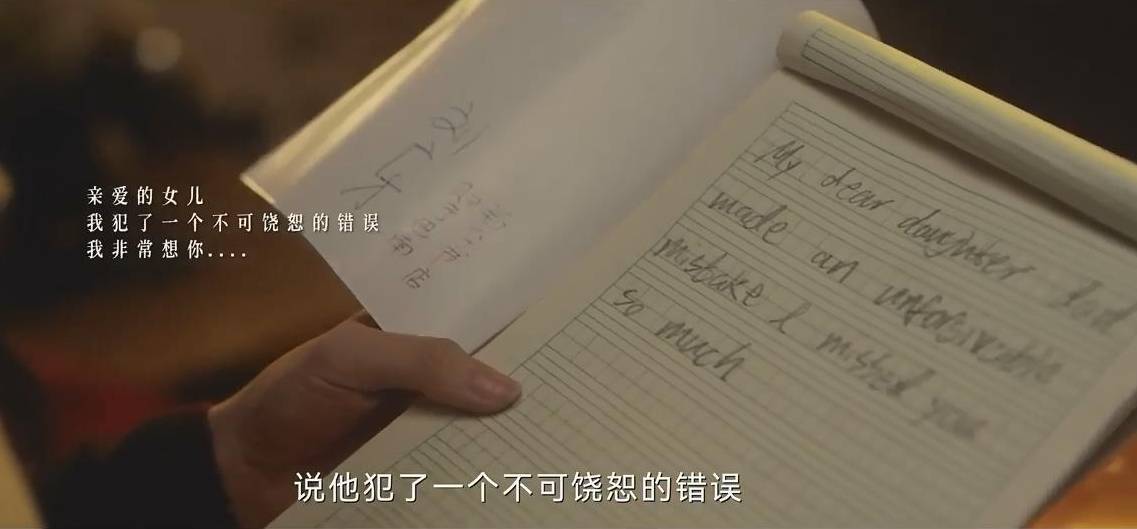 亲爱的女儿
我犯了一个不可饶恕的错误
我非常想你....
My dear daughter
made an unforgivable
mistake I missed you
so much
说他犯了一个不可饶恕的错误